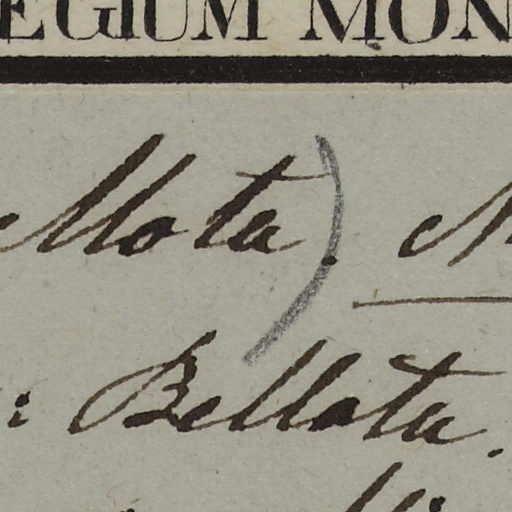 EGIUM MON
Mota).
Bellota.